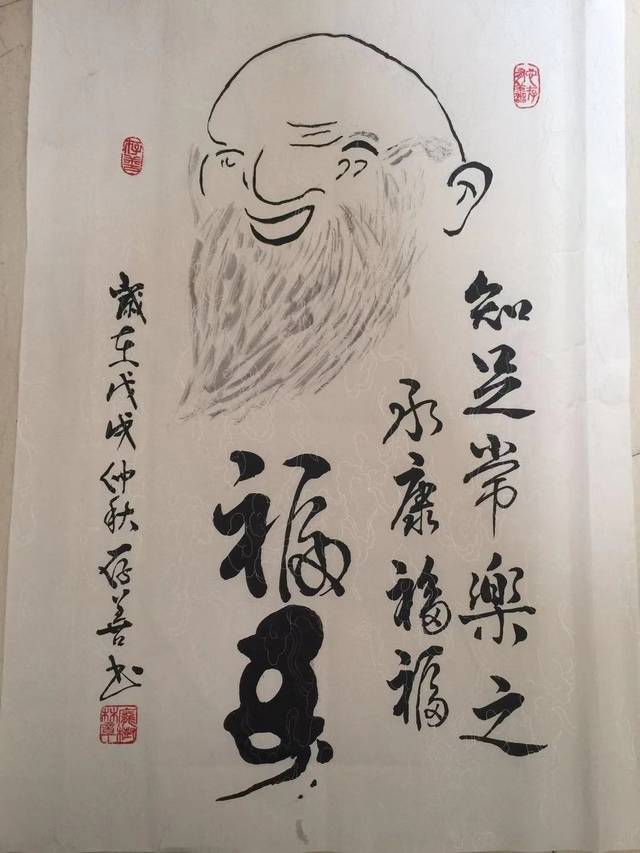 知足常樂之
永康福福
福
歲在戊戌仲秋存善书